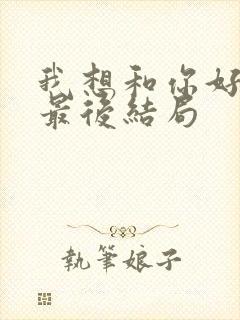 我想和你好
最後結局
執筆娘子